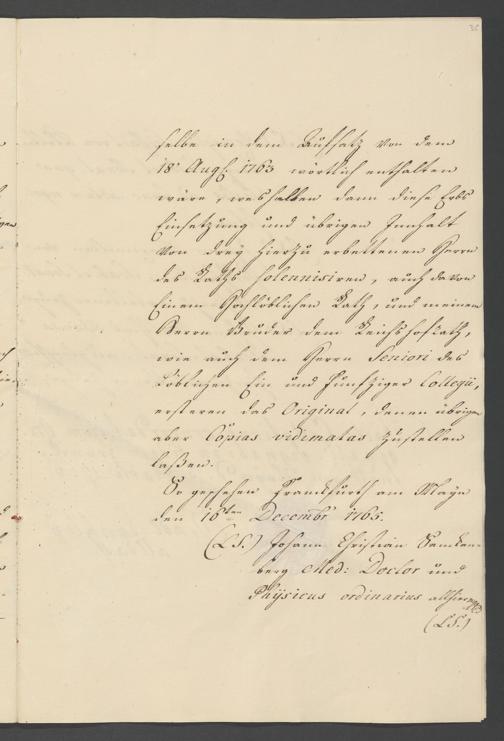 35
selbe in dem Aufsatz von dem
18. Augs. 1763 wörtlich enthalten
wäre, weshalben dann diese Erbs
Einsetzung und übrigen Innhalt
von drey hierzu erbettenen Herrn
des Raths solennisiren, auch davon
Einem Hochlöblichen Rath, und meinem
Herrn Bruder dem Reichshofrath,
wie auch dem Herrn Seniori des
Löblichen Ein und Funfziger Collegii,
ersteren das Original, denen übrigen
aber Copias vidimatas zustellen
laßen.
So geschehen Franckfurth am Mayn
den 16ten Decembr 1765.
(L.S.) Johann Christian Sencken-
berg Med: Doctor und
Physicus ordinarius allhier
(L.S.)